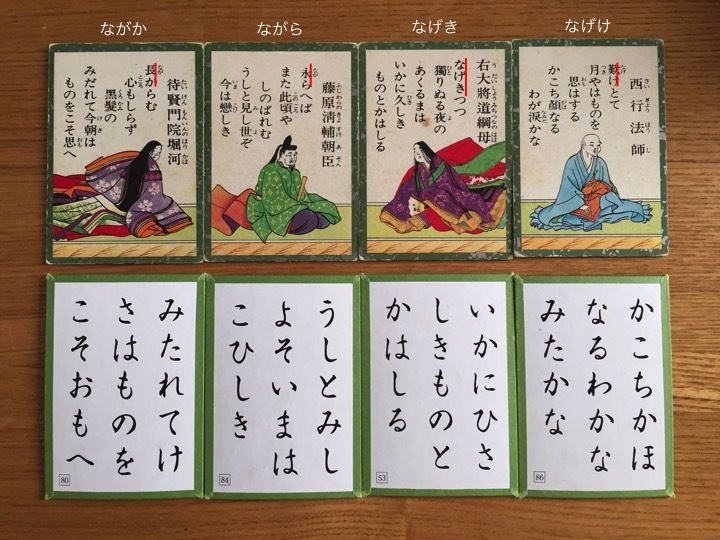 ながか
ながら
なげき
なげけ
待賢門院堀河
長からむ
心もしらず
黒髮の
みだれて今朝は
ものをこそ思へ
藤原淸輔朝臣
永らへば
また此頃や
しのばれむ
うしと見し世ぞ
今は戀しき
右大將道綱母
なげきつつ
獨りぬる夜の
あくるまは
いかに久しき
ものとかはしる
西行法師
歎けとて
月やはものを
思はする
かこち顏なる
わが涙かな
みたれてけ
さはものを
こそおもへ
80
うしとみし
よそいまは
こひしき
84
いかにひさ
しきものと
かはしる
53
かこちかほ
なるわかな
みたかな
86